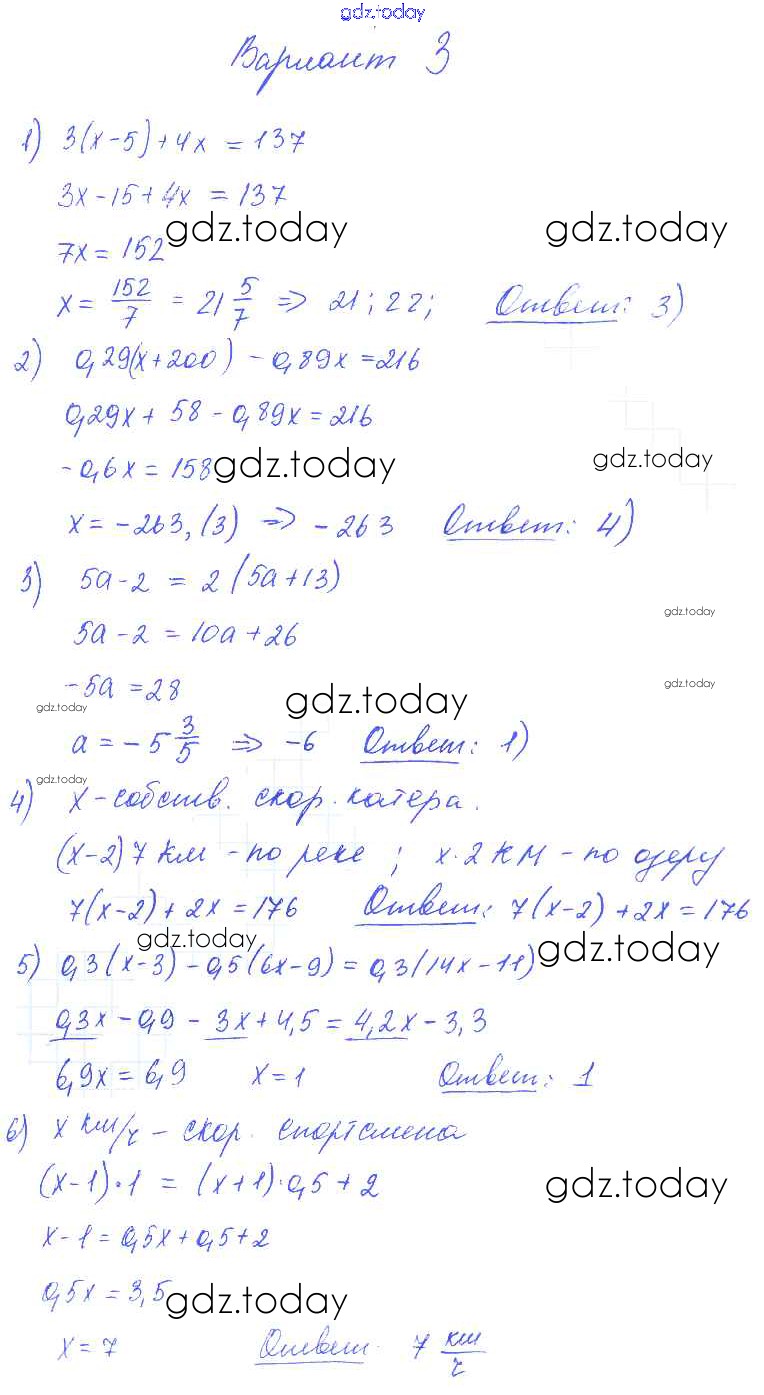 gdz.today
Вариант 3
1) 3(x-5)+4x = 137
3x-15+4x = 137
gdz.today gdz.today
7x = 152
x = 152/7 = 21 5/7 => 21; 22; Ответ: 3)
2) 0,29(x+200) - 0,89x = 216
0,29x + 58 - 0,89x = 216
-0,6x = 158 gdz.today gdz.today
x = -263,(3) => -263 Ответ: 4)
3) 5a-2 = 2(5a+13)
gdz.today
5a-2 = 10a+26
-5a = 28 gdz.today
gdz.today gdz.today
a = -5 3/5 => -6 Ответ: 1)
gdz.today
4) x - собств. скор. катера.
(x-2)7 км - по реке; x·2 км - по озеру
7(x-2)+2x = 176 Ответ: 7(x-2)+2x = 176
gdz.today gdz.today
5) 0,3(x-3) - 0,5(6x-9) = 0,3(14x-11)
0,3x - 0,9 - 3x + 4,5 = 4,2x - 3,3
6,9x = 6,9 x = 1 Ответ: 1
6) x км/ч - скор. спортсмена
(x-1)·1 = (x+1)·0,5+2 gdz.today
x-1 = 0,5x+0,5+2
0,5x = 3,5 gdz.today
x = 7 Ответ. 7 км/ч